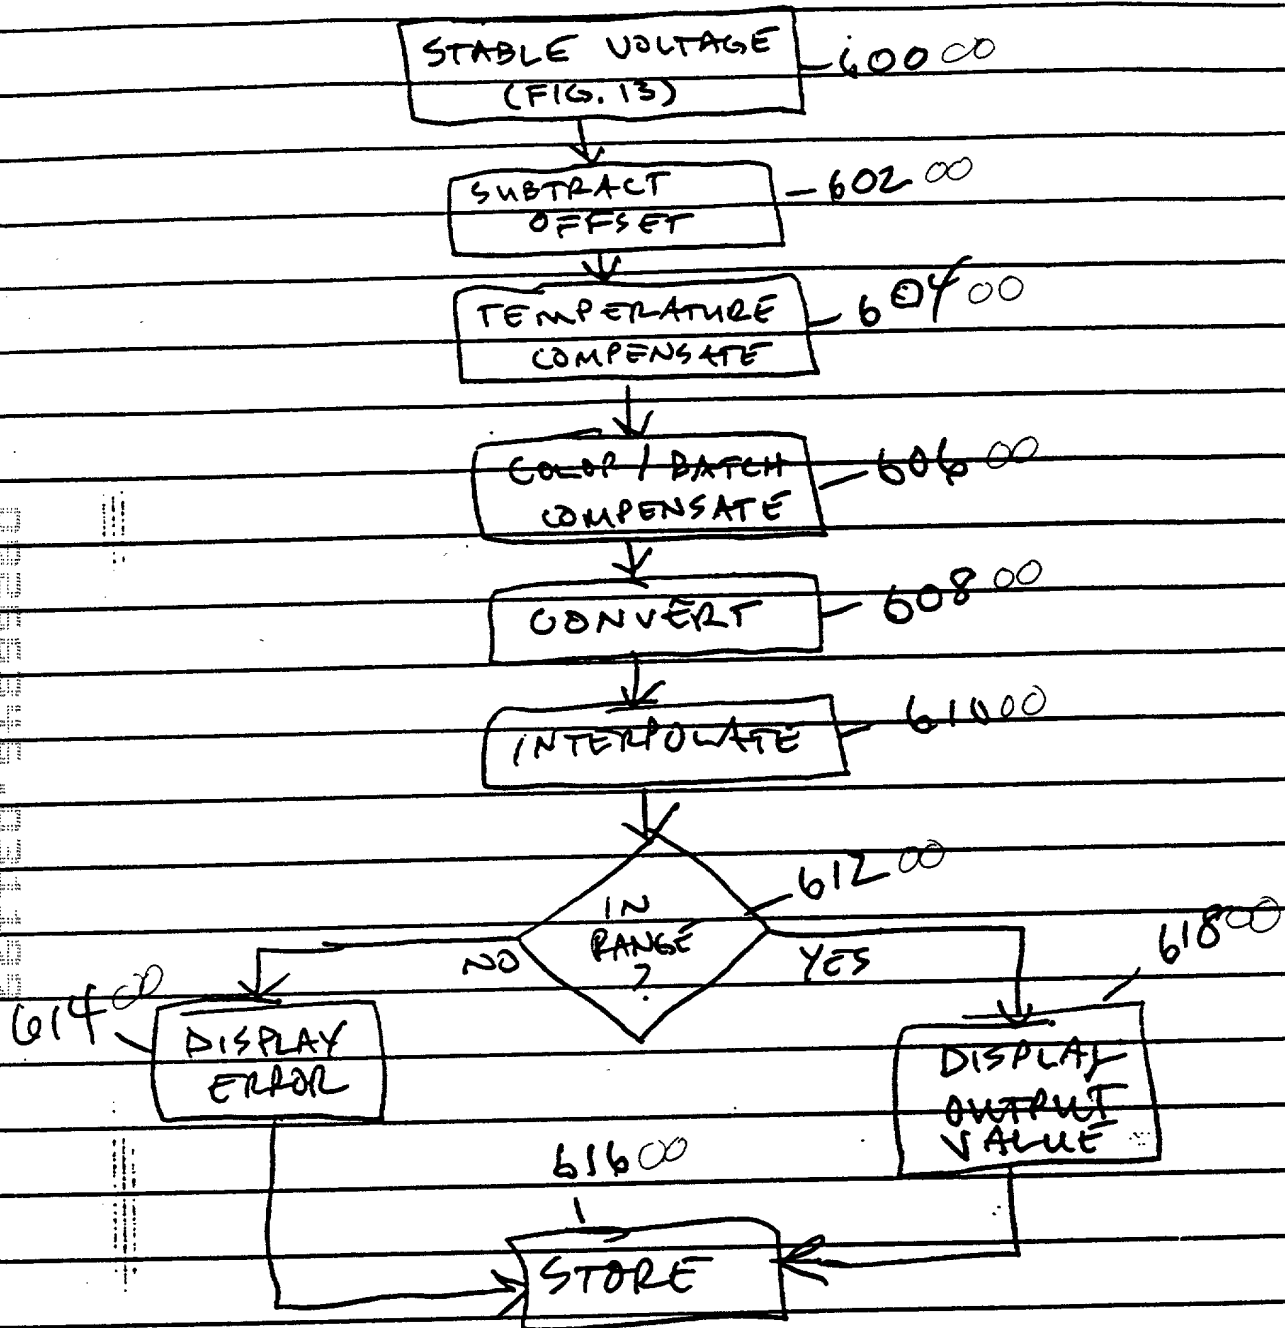 STABLE VOLTAGE
(FIG. 13)
60000
SUBTRACT
OFFSET
60200
TEMPERATURE
COMPENSATE
60400
COLOR / BATCH
COMPENSATE
60600
CONVERT
60800
INTERPOLATE
61000
IN
RANGE
?
61200
NO
YES
61400
DISPLAY
ERROR
61800
DISPLAY
OUTPUT
VALUE
61600
STORE